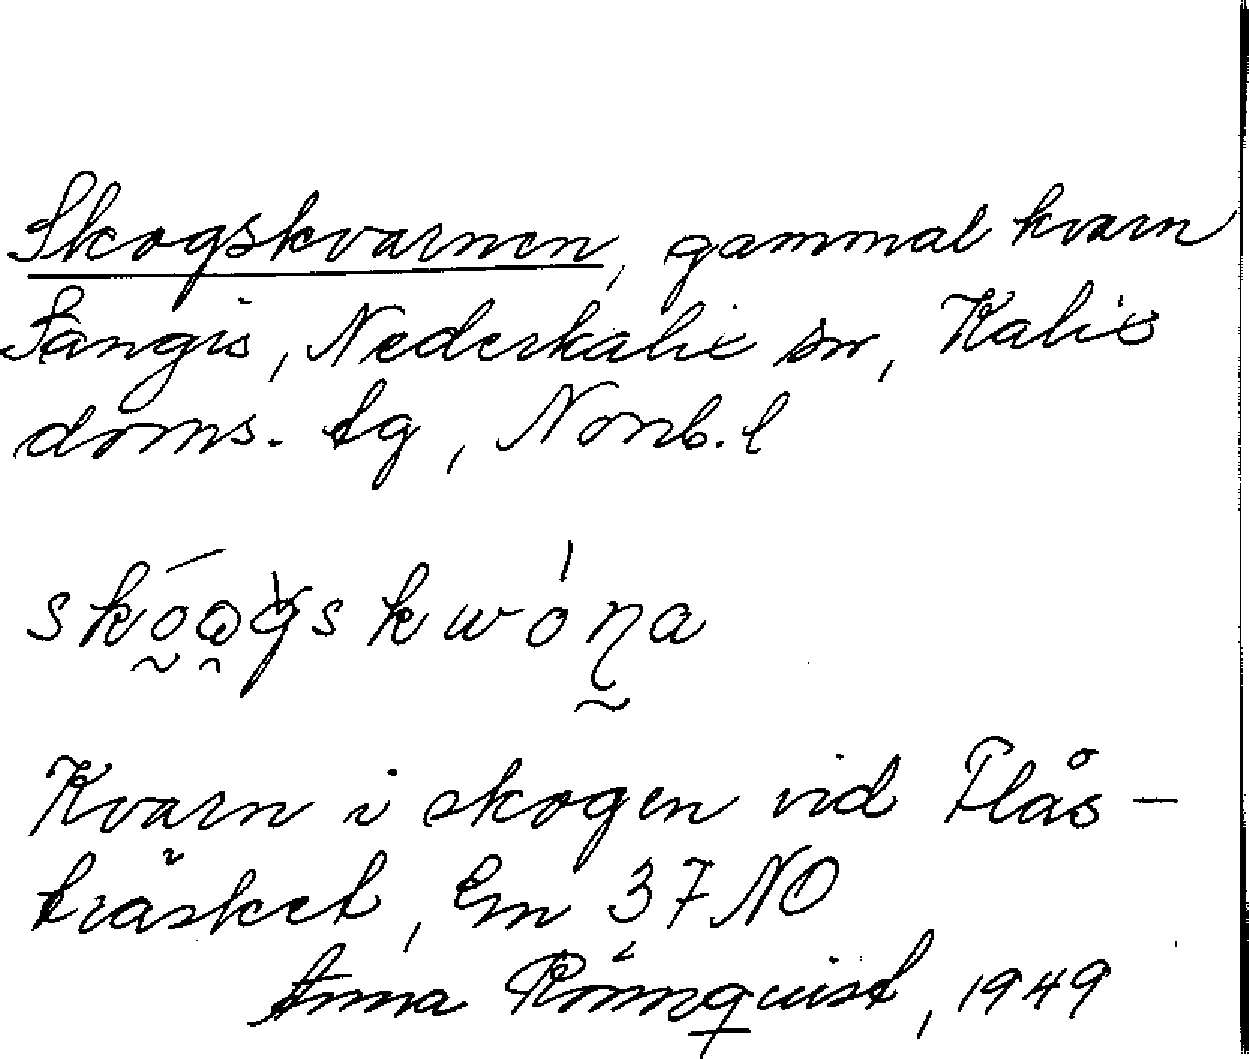 Skogskvarnen, gammal kvarn
Sangis, Nederkalix sn, Kalix
doms. tg, Norrb. l
Kvarn i skogen vid Flås-
träsket, Em 37 NO
Anna Rönnquist, 1949